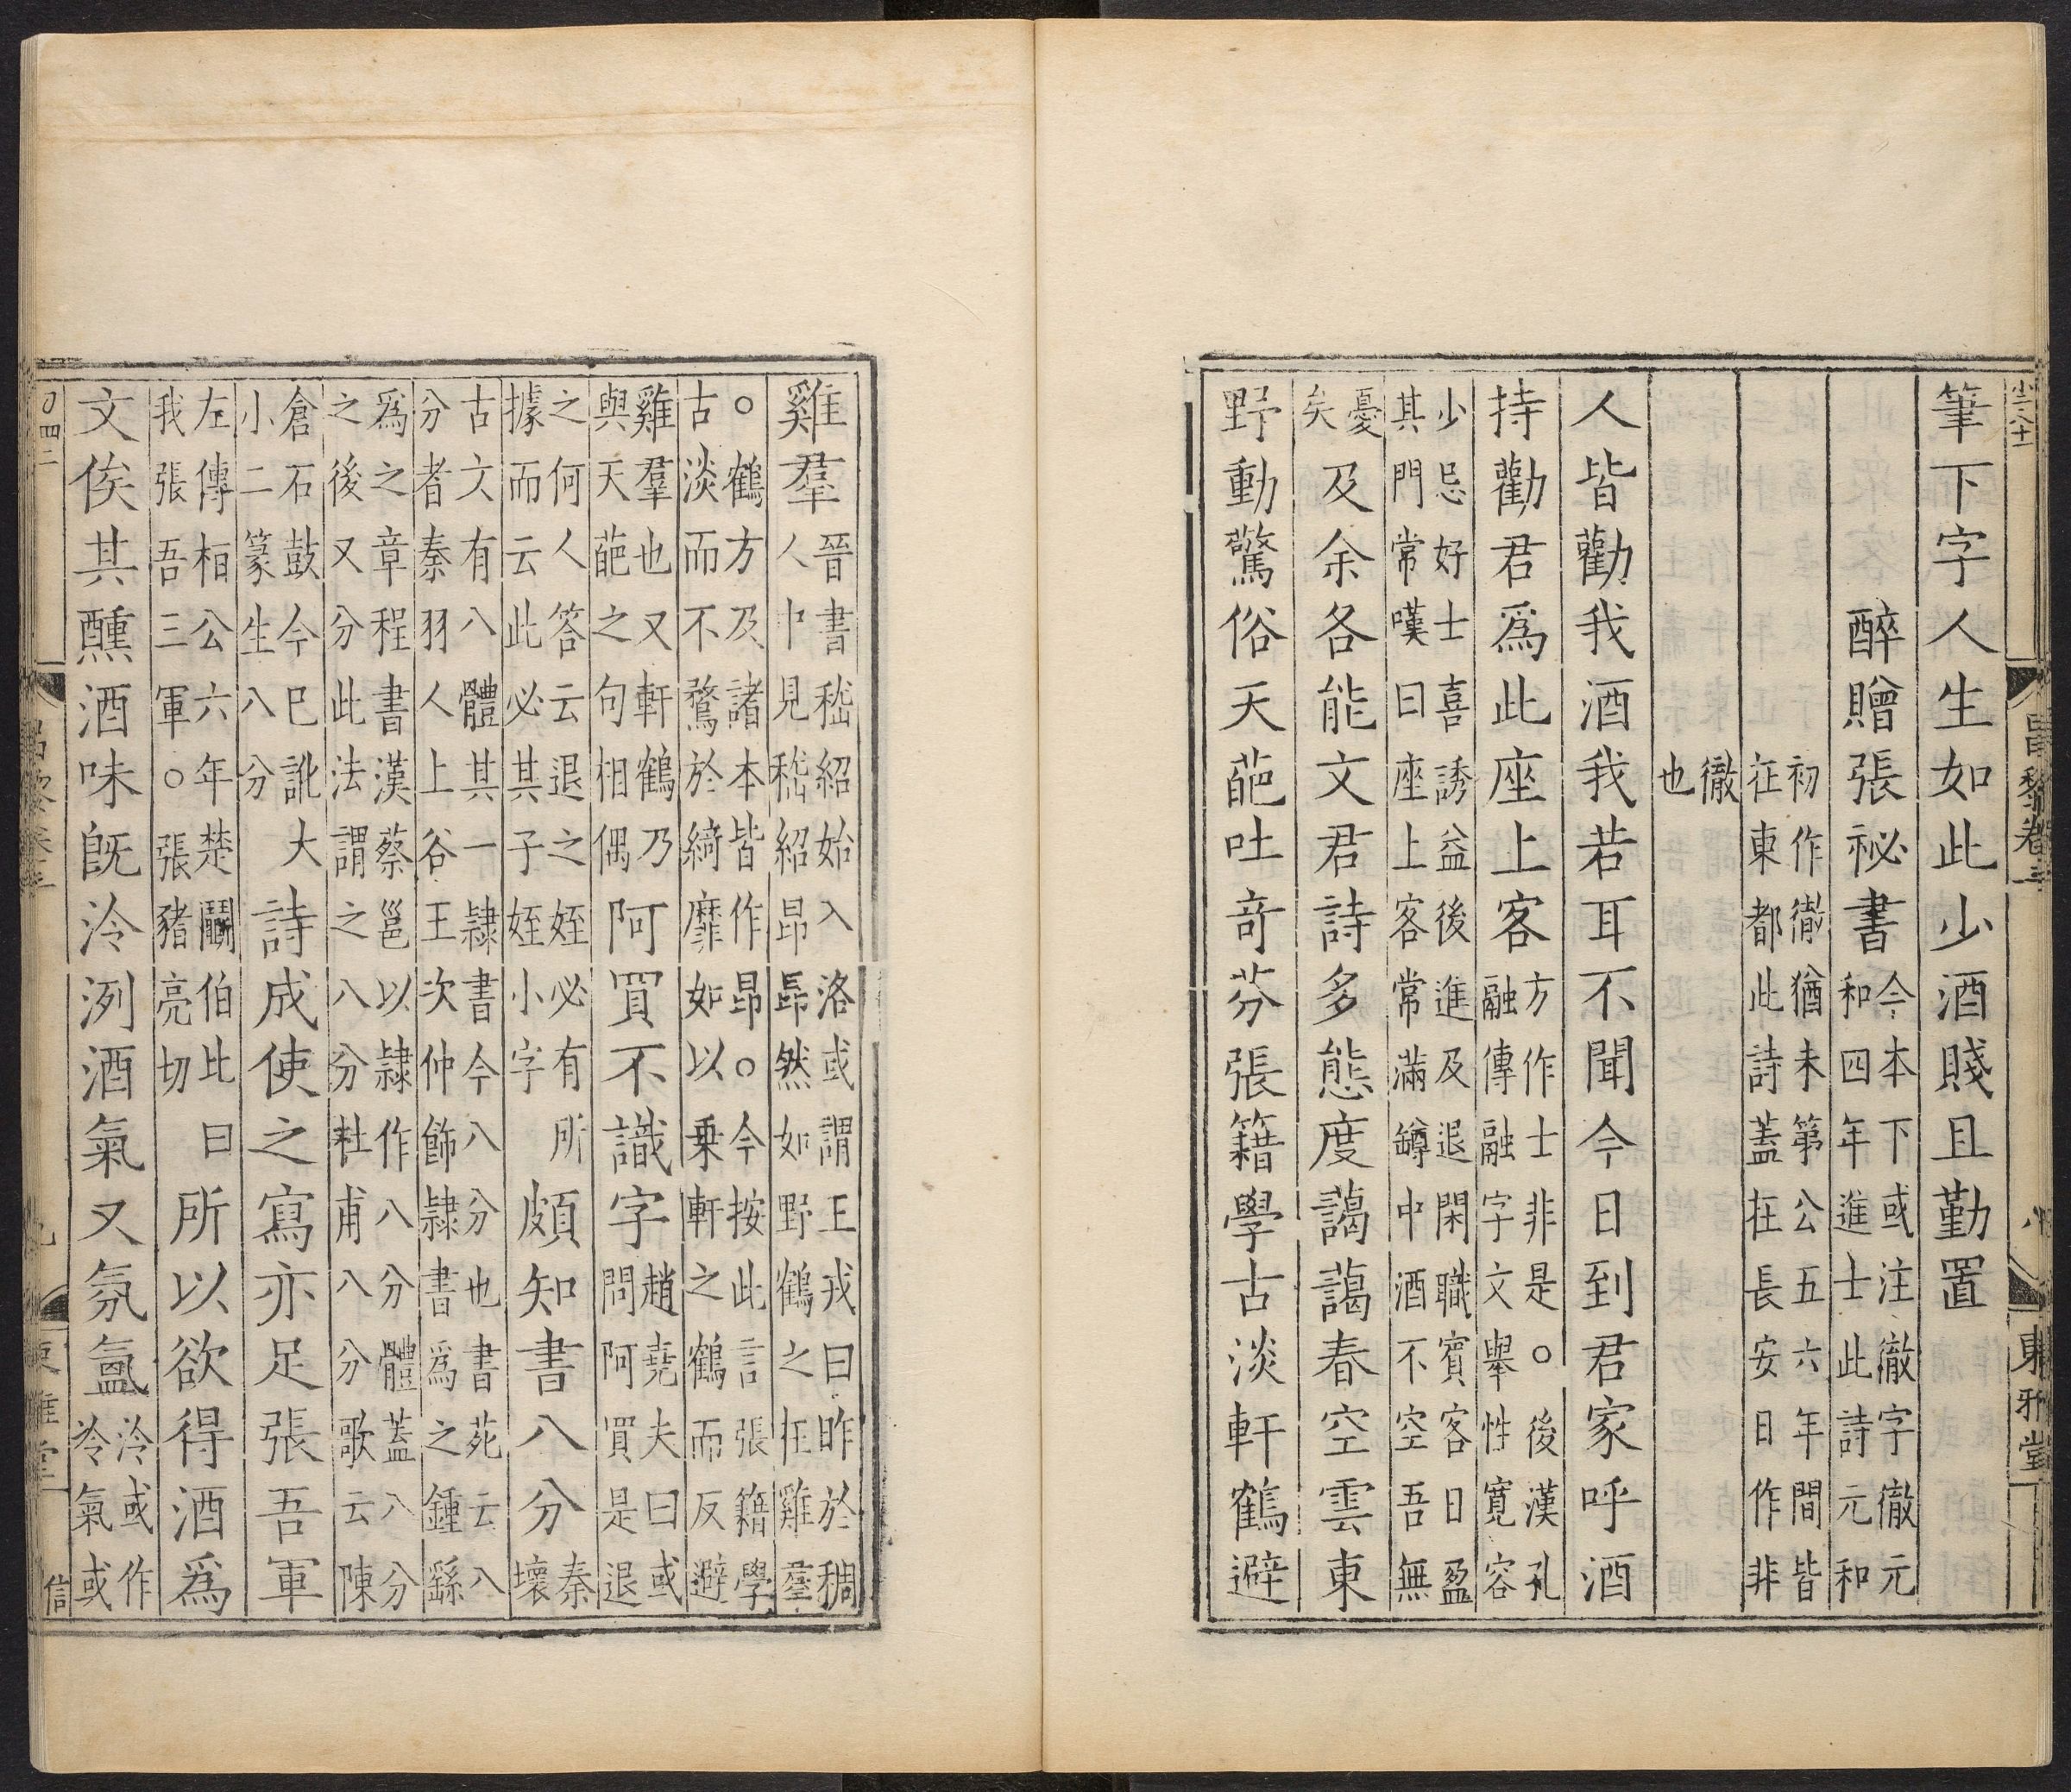 筆下字人生如此少酒賤且勤置
醉贈張祕書今本下或注徹字徹元和四年進士此詩元和
初作徹猶未第公五六年間皆在東都此詩蓋在長安日作非
徹也
人皆勸我酒我若耳不聞今日到君家呼酒
持勸君爲此座上客方作士非是○後漢孔融傳融字文舉性寬容
少忌好士喜誘益後進及退閑職賓客日盈其門常嘆曰座上客常滿罇中酒不空吾無
憂矣及余各能文君詩多態度藹藹春空雲東
野動驚俗天葩吐奇芬張籍學古淡軒鶴避
昌黎卷二
八
東雅堂
雞羣晉書嵇紹始入洛或謂王戎曰昨於稠人中見嵇紹昂昂然如野鶴之在雞羣
○鶴方及諸本皆作昂○今按此言張籍學古淡而不騖於綺靡如以乗軒之鶴而反避
雞羣也又軒鶴乃與天葩之句相偶阿買不識字趙堯夫曰或問阿買是退
之何人答云退之姪必有所據而云此必其子姪小字頗知書八分秦壞
古文有八體其一隸書今八分也書苑云八分者秦羽人上谷王次仲飾隸書爲之鍾繇
爲之章程書漢蔡邕以隸作八分體蓋八分之後又分此法謂之八分杜甫八分歌云陳
倉石鼓今巳訛大小二篆生八分詩成使之寫亦足張吾軍
左傳栢公六年楚鬭伯此曰我張吾三軍○張豬亮切所以欲得酒爲
文俟其醺酒味旣泠冽酒氣又氛氳泠或作冷氣或
信
東雅堂